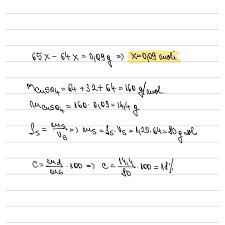 65x - 64x = 0,09g => x = 0,09 mol
M CuSO4 = 64 + 32 + 64 = 160 g/mol
m CuSO4 = 160 · 0,09 = 14,4 g
ms = 1,25 · 64 = 80 g
C = · 100 => C = 14,4/80 · 100 = 18%